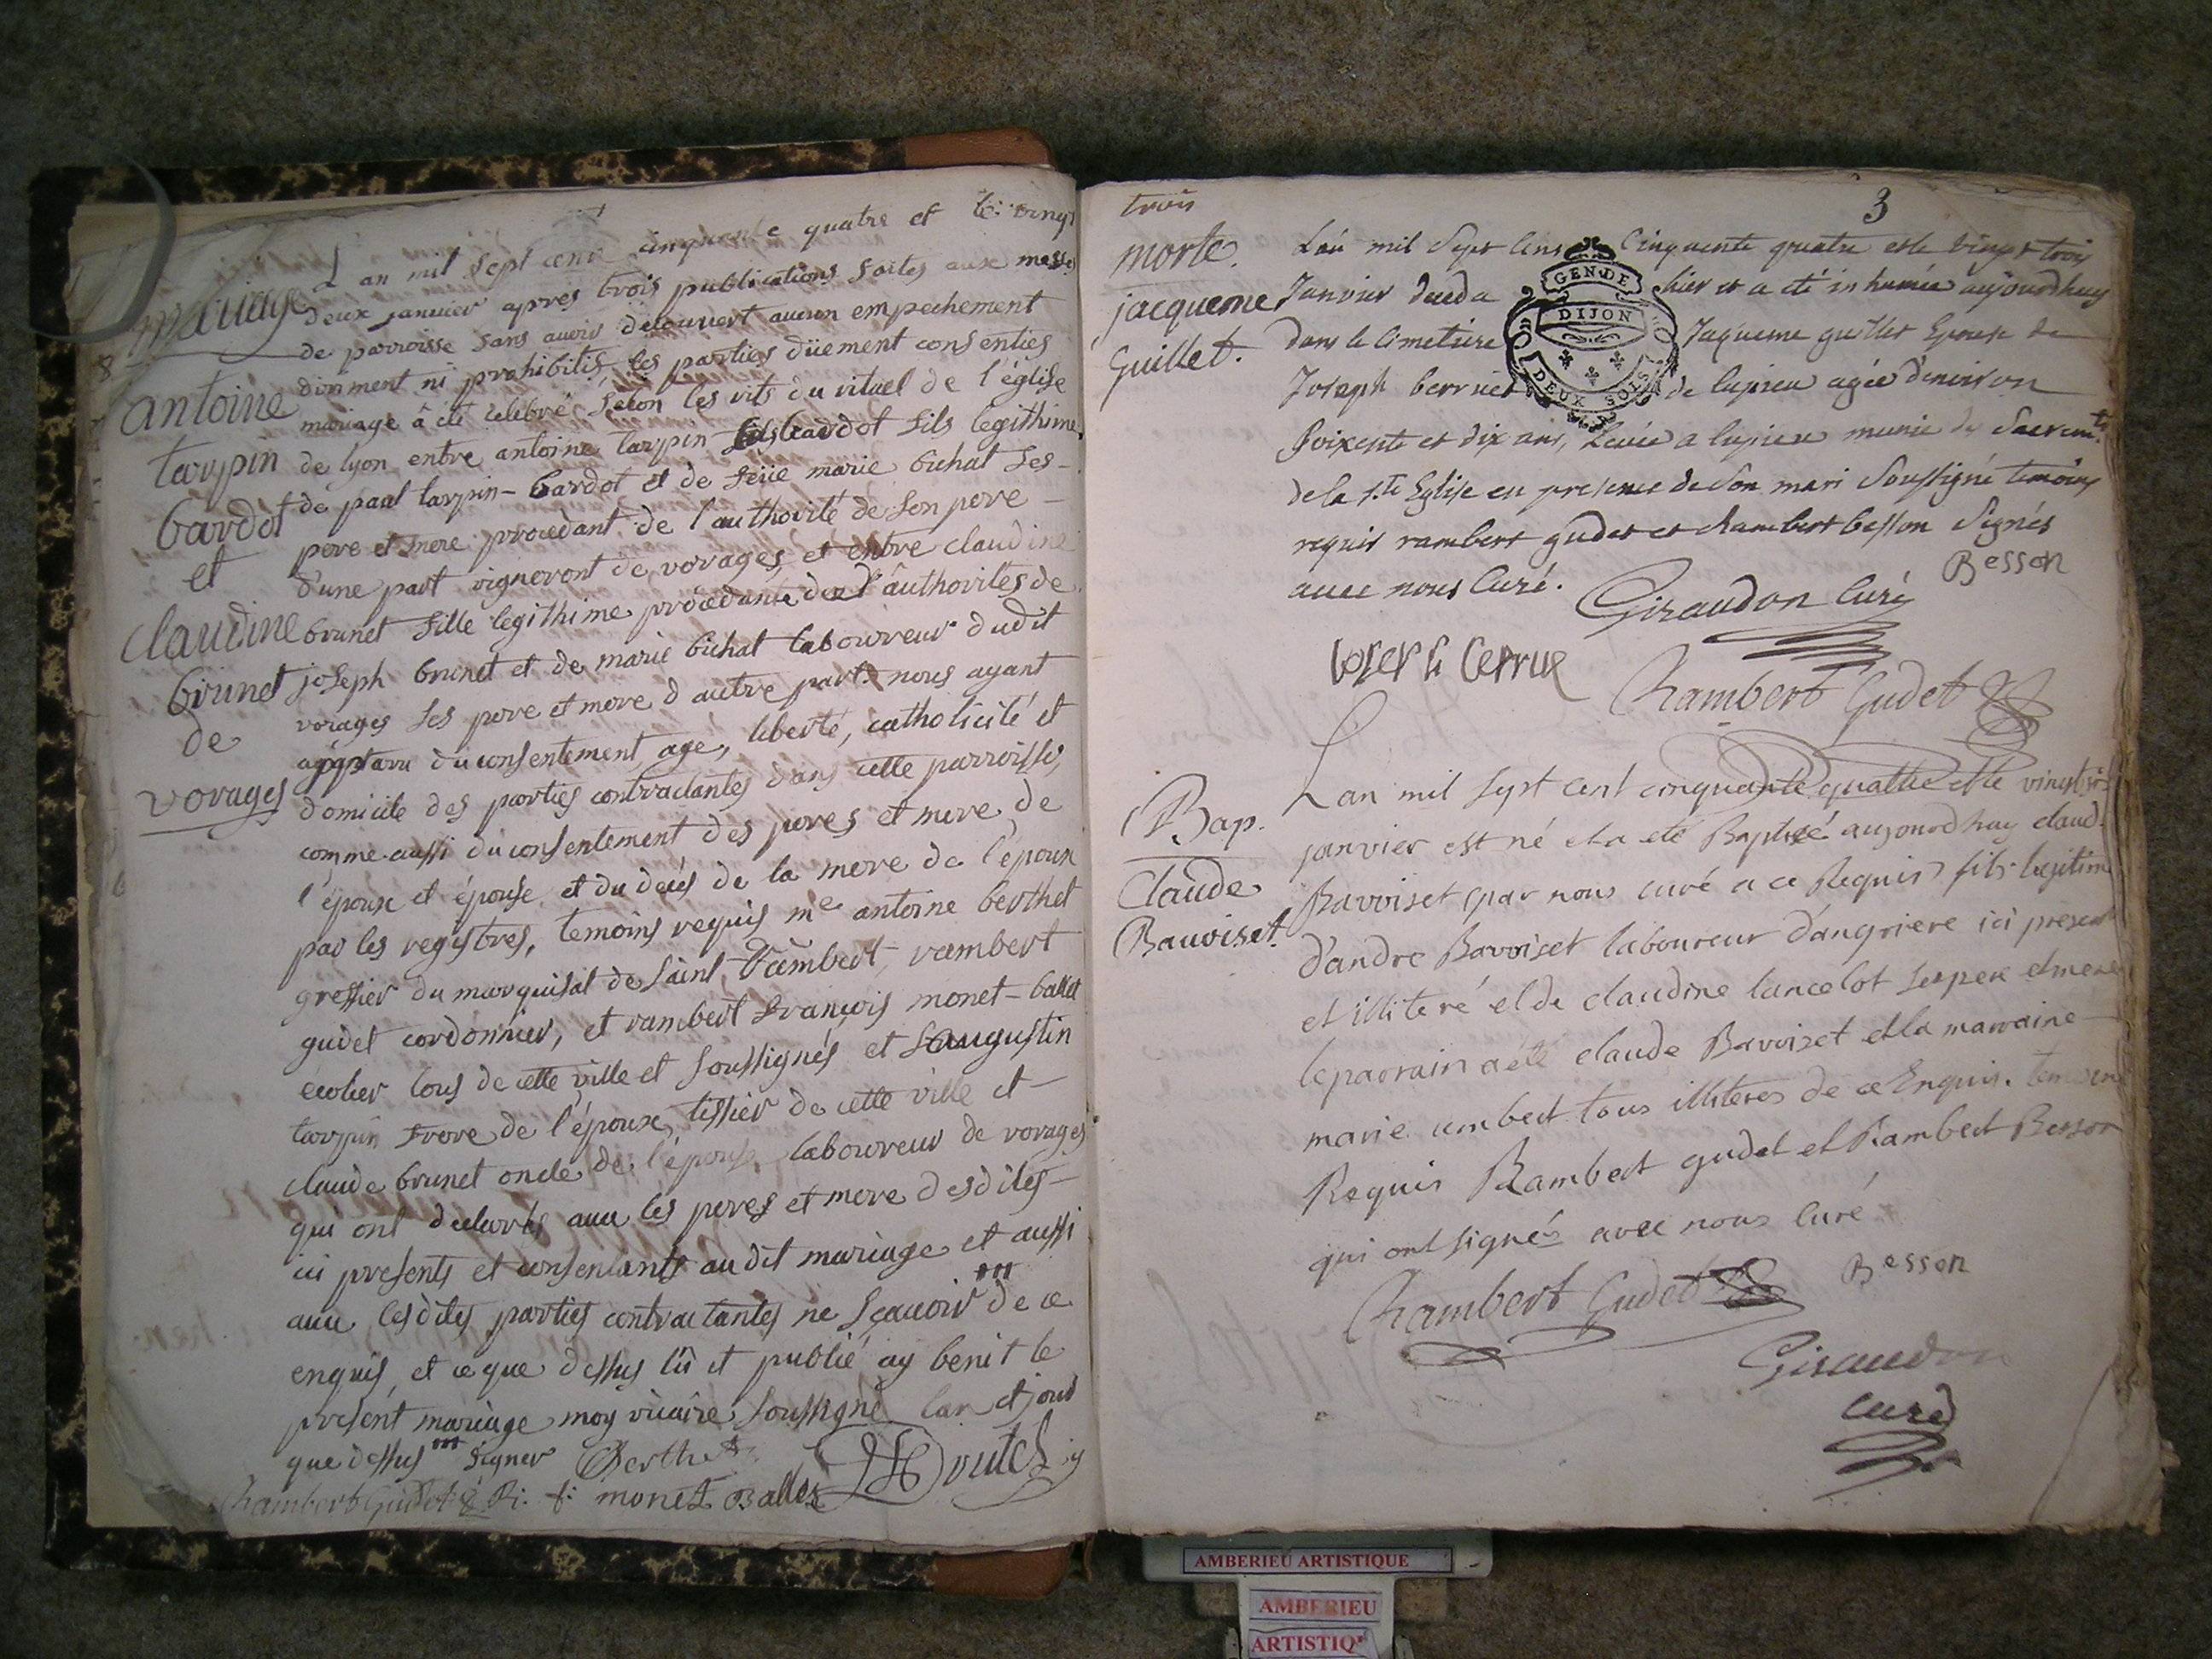 mariage
antoine
tarpin
bardot
et
claudine
brunet
de
vorages
L an mil sept cent cinquante quatre et le vingt
deux janvier apres trois publications faites aux messes
de parroisse sans avoir découvert aucun empechement
diriment ni prohibitif, les parties düement consenties
mariage â eté celebré selon les rits du rituel de l'église
de lyon entre antoine tarpin bardot fils legithime
de paul tarpin-bardot et de feüe marie bichat ses
pere et mere procedant de l'authorité de son pere
d'une part vigneront de vorages, et entre claudine
brunet fille legithime procedante de l'âuthorités de
joseph brunet et de marie bichat laboureur dudit
vorages ses pere et mere d'autre part. nous ayant
apparu du consentement, age, liberté, catholicité et
domicile des parties contractantes dans cette parroisse,
comme aussi du consentement des peres et mere de
l'époux et épouse et du decés de la mere de l'époux
par les registres, temoins requis me antoine berthet
greffier du marquisat de saint rambert, rambert
gudet cordonnier, et rambert françois monet-ballet
écolier tous de cette ville et soussignés et augustin
tarpin frere de l'époux, tissier de cette ville et
claude brunet oncle de l'épouse laboureur de vorages
qui ont declarés avec les peres et mere desdites
ici presents et consentants au dit mariage et aussi
avec lesdites parties contractantes ne sçavoir de ce
enquis, et ce que dessus lû et publié ay benit le
present mariage moy vicaire soussigné l'an et jour
que dessus signer Berthet
Chambert Gudet R: f: monet Ballet
trois
3
morte
jacqueme
Guillet.
GEN. DE
DIJON
DEUX SOLS
L'an mil Sept Cens Cinquante quatre et le vingt trois
Janvier deceda hier et a été inhumée aujourdhuy
dans le Cimetiere Jaqueme guillet Epouse de
Joseph berrier de lupieu agée d'environ
soixente et dix ans, a lupieu munie des Sacremts
de la Ste Eglise en presence de son mari soussigné temoins
requis rambert gudet et chambert besson signés
avec nous Curé.
Besson
Giraudon Curé
Chambert Gudet
Bap.
Claude
Bauoiset.
L an mil sept cent cinquante quattre et le vingt
janvier est né et a eté Baptisé aujourdhuy claude
Bavoiset par nous curé a ce Requis fils legitime
d'andre Bavoiset laboureur d'angriere ici present
et illiteré et de claudine lancelot ses pere et mere
le parrain a eté claude Bavoiset et la marraine
marie umbert tous illiteres de ce Enquis. temoins
Requis Rambert gudet et Rambert Besson
qui ont signés avec nous Curé
Chambert Gudet
Besson
Giraudon
curé
AMBERIEU ARTISTIQUE
AMBERIEU
ARTISTIQ